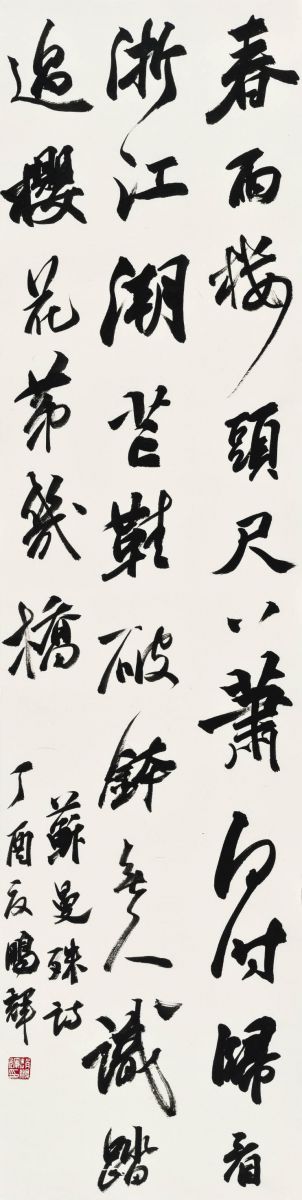 春雨樓頭尺八蕭何时歸看
浙江潮芒鞋破鉢無人識踏
過櫻花第幾橋
蘇曼殊詩
丁酉夏鵬輝